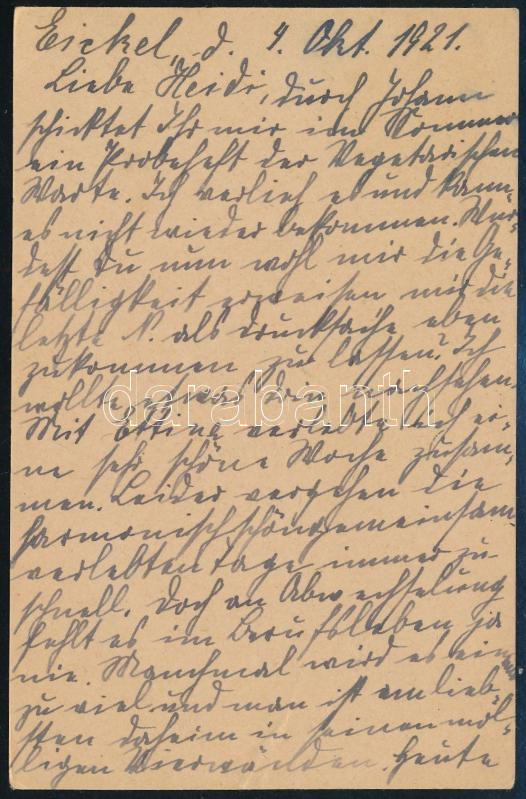 Eickel, d. 4. Okt. 1921.
Liebe Heidi, durch Johann
schicktet Ihr mir im Sommer
ein Probeheft der Vegetarischen
Warte. Ich verlieh es und kann
es nicht wieder bekommen. Wür-
dest Du nun wohl mir die Ge-
fälligkeit erweisen mir die
letzte N. als Drucksache eben
zukommen zu lassen? Ich
wollte etwas drin nachsehen.
Mit verlebte ich ei-
ne sehr schöne Woche zusam-
men. Leider vergehen die
harmonisch schön gemeinsam
verlebten Tage immer zu
schnell. Doch an Abwechselung
fehlt es im Berufsleben ja
nie. Manchmal wird es einem
zu viel und man ist am lieb-
sten daheim in seinen mol-
ligen vier Wänden. Heute
darabanth